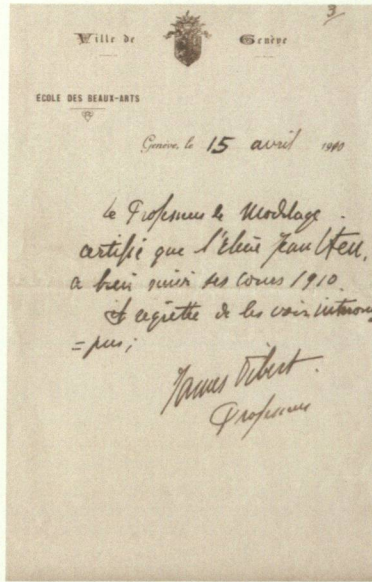 3
Ville de Genève
ÉCOLE DES BEAUX-ARTS
Genève, le 15 avril 1910
Le Professeur de Modelage
certifie que l'élève Jean
a bien suivi ses cours 1910.
Il regrette de les voir interrom
=pus;
James Vibert.
Professeur